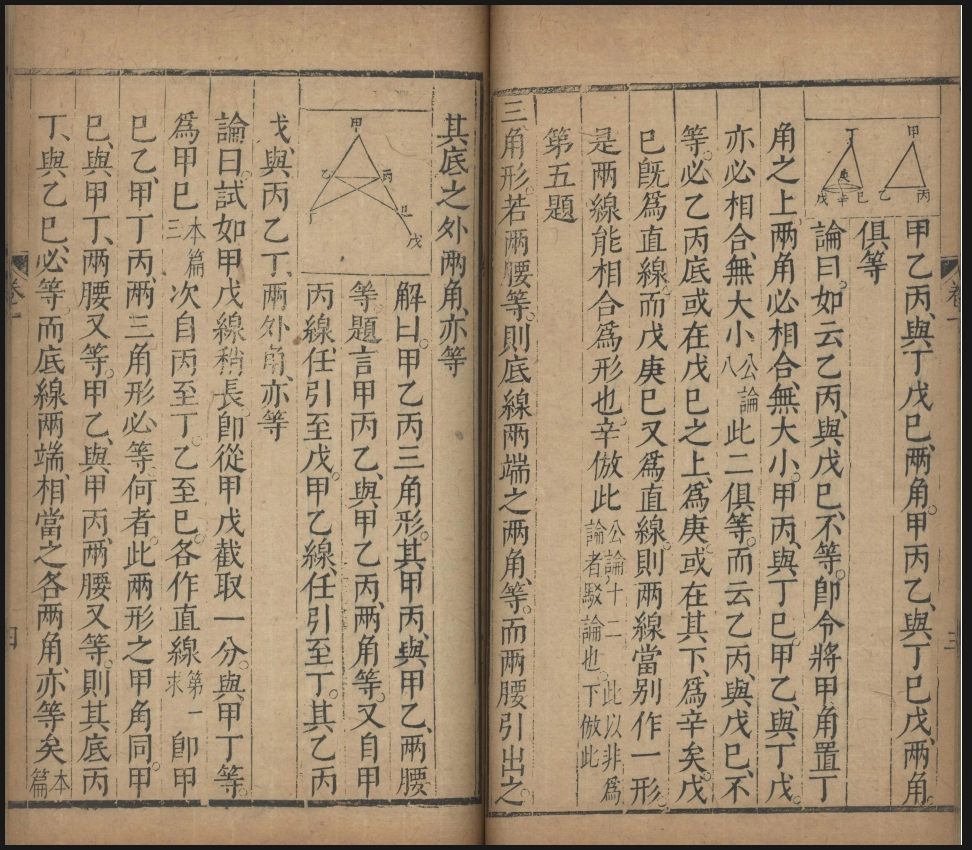 甲乙丙、與丁戊巳、兩角。甲丙乙、與丁巳戊、兩角。
俱等
論曰。如云乙丙、與戊巳、不等。卽令將甲角置丁
角之上。兩角必相合。無大小。甲丙、與丁巳。甲乙、與丁戊。
亦必相合。無大小。公論八此二俱等。而云乙丙、與戊巳、不
等。必乙丙底或在戊巳之上。爲庚。或在其下。爲辛矣。戊
巳旣爲直線。而戊庚巳又爲直線。則兩線當别作一形。
是兩線能相合爲形也。辛倣此公論十二此以非爲論者駁論也下倣此
第五題
三角形。若兩腰等。則底線兩端之兩角、等。而兩腰引出之。
其底之外兩角、亦等
解曰。甲乙丙三角形。其甲丙、與甲乙、兩腰
等。題言甲丙乙、與甲乙丙、兩角等。又自甲
丙線。任引至戊。甲乙線、任引至丁。其乙丙
戊、與丙乙丁、兩外角、亦等
論曰。試如甲戊線稍長。卽從甲戊截取一分。與甲丁等。
爲甲巳本篇三次自丙至丁。乙至巳。各作直線第一求卽甲
巳乙、甲丁丙、兩三角形必等。何者。此兩形之甲角同。甲
巳、與甲丁、兩腰又等。甲乙、與甲丙、兩腰又等。則其底丙
丁、與乙巳、必等。而底線兩端、相當之各兩角、亦等矣本篇
甲
丙
乙
丁
庚
戊
辛
巳
甲
乙
丙
丁
巳
戊